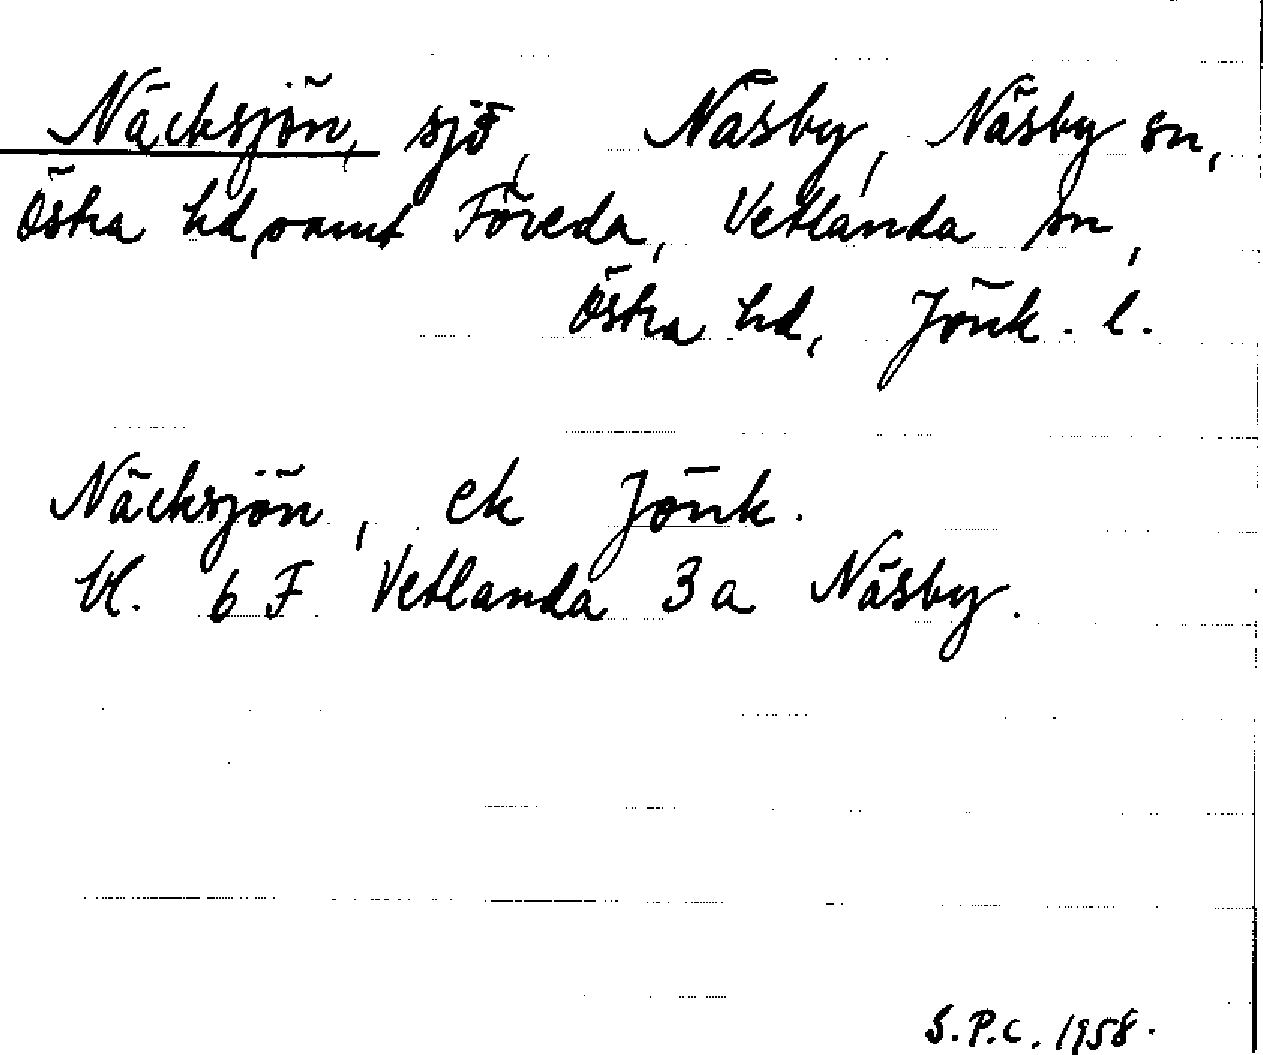 Näcksjön, sjö, Näsby, Näsby sn,
Östra hd, samt Föreda, Vetlanda sn,
Östra hd, Jönk. l.
Näcksjön, ek Jönk.
Bl. 6 F Vetlanda 3 a Näsby.
S.P.C. 1958.